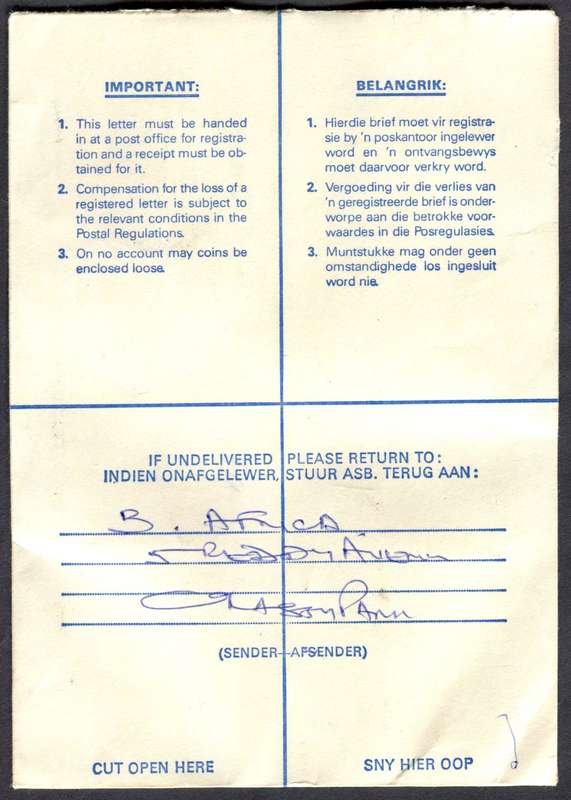 IMPORTANT:
1. This letter must be handed
in at a post office for registra-
tion and a receipt must be ob-
tained for it.
2. Compensation for the loss of a
registered letter is subject to
the relevant conditions in the
Postal Regulations.
3. On no account may coins be
enclosed loose.
BELANGRIK:
1. Hierdie brief moet vir registra-
sie by 'n poskantoor ingelewer
word en 'n ontvangsbewys
moet daarvoor verkry word.
2. Vergoeding vir die verlies van
'n geregistreerde brief is onder-
worpe aan die betrokke voor-
waardes in die Posregulasies.
3. Muntstukke mag onder geen
omstandighede los ingesluit
word nie.
IF UNDELIVERED PLEASE RETURN TO:
INDIEN ONAFGELEWER, STUUR ASB. TERUG AAN:
B. AFRICA
5 REDDY AVENUE
GRASSY PARK
(SENDER—AFSENDER)
CUT OPEN HERE
SNY HIER OOP